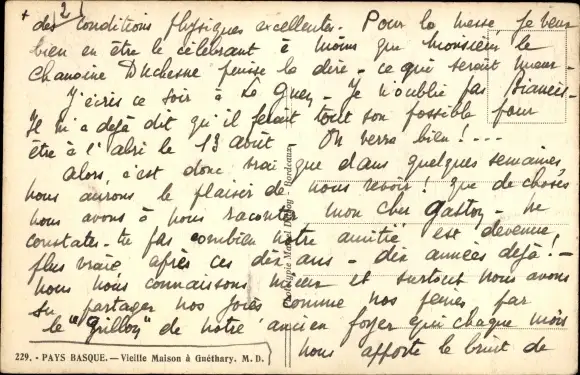 + 2
des conditions physiques excellentes - Pour la messe, je veux
bien en être le célébrant à moins que Monsieur le
Chanoine Duchesne puisse la dire - ce qui serait mieux -
J'écris ce soir à Le Guey - Je n'oublie pas Biancis -
Il m'a déjà dit qu'il ferait tout son possible pour
être à l'abri le 13 août - On verra bien ! ---
Alors, c'est donc vrai que dans quelques semaines,
nous aurons le plaisir de nous revoir ! que de choses
nous avons à nous raconter mon cher Gaston - ne
constates-tu pas combien notre amitié est devenue
plus vraie après ces dix ans - dix années déjà ! -
nous nous connaissons mieux et surtout nous avons
su partager nos joies comme nos peines par
le "Grillon" de notre ancien foyer qui chaque mois
nous apporte le bruit de
229. - PAYS BASQUE. — Vieille Maison à Guéthary. M. D.
Phototypie Marcel Delboy - Bordeaux